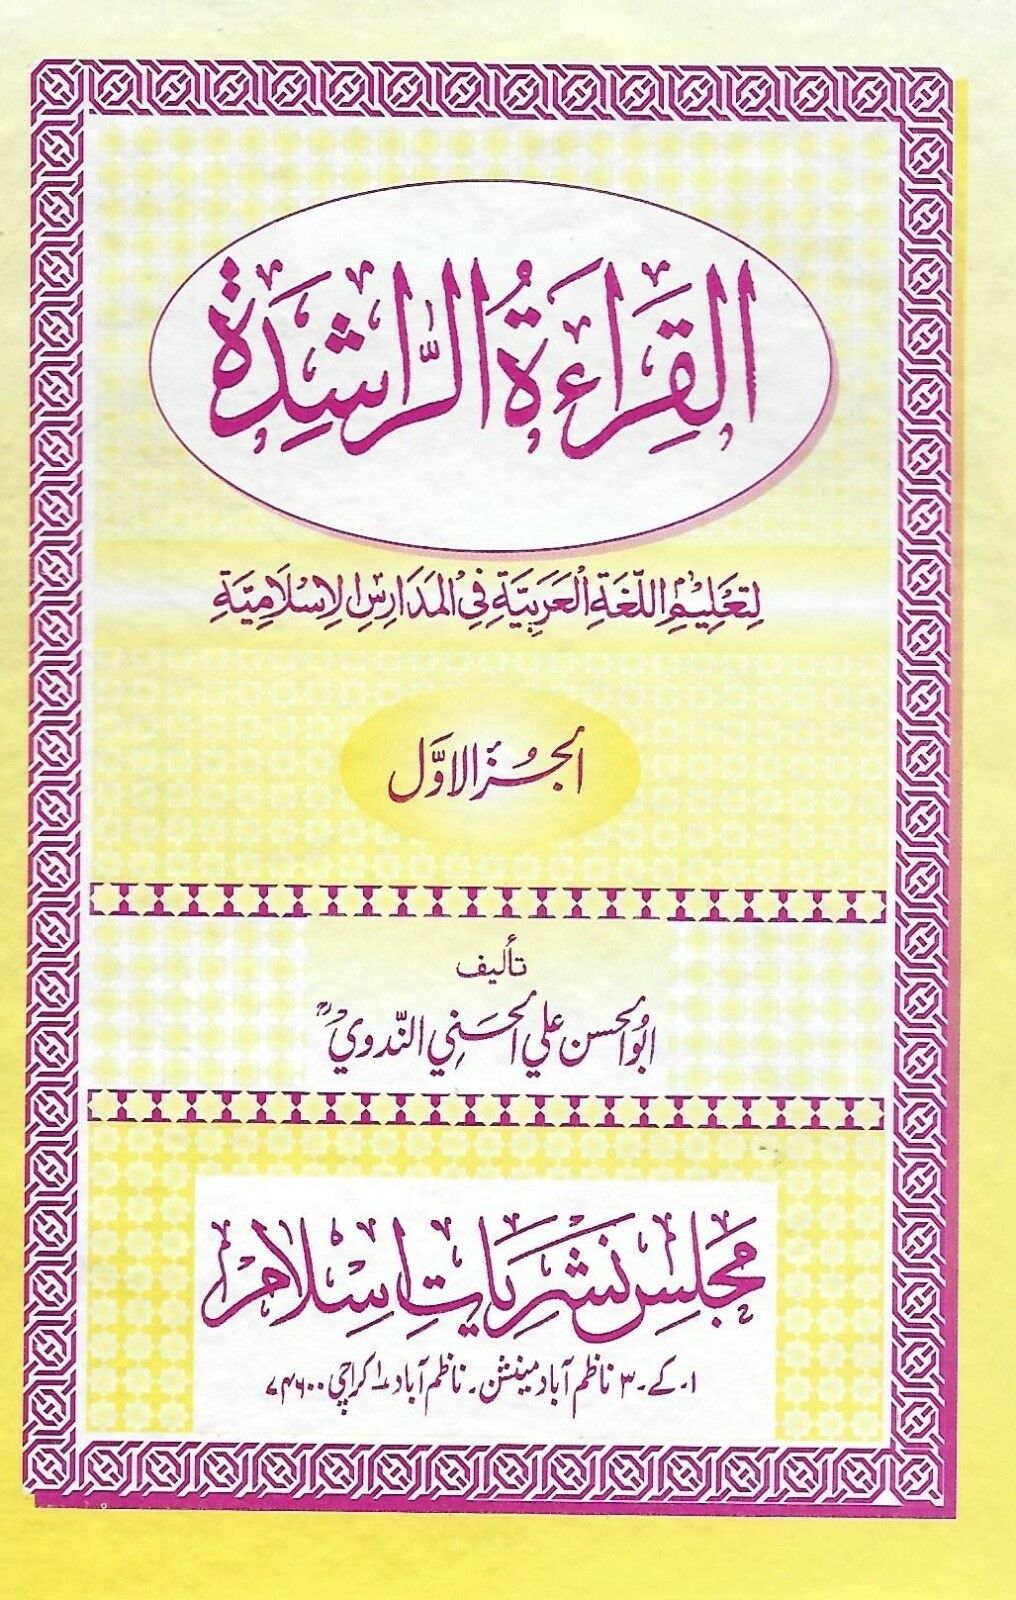 القِرَاءَةُ الرَّاشِدَة
لِتَعْلِيْمِ اللّغَةِ الْعَرَبِيَّةِ فِي الْمَدَارِسِ الْاِسْلَامِيَّةِ
الجُزْءُ الاَوَّل
تأليف
ابُو الحسن علي الحسَني النّدوي
مَجْلِسِ نَشْرِيَاتِ اِسْلَام
۱۔کے۔۳ ناظم آباد مینشن۔ ناظم آباد ۱ کراچی ۷۴۶۰۰